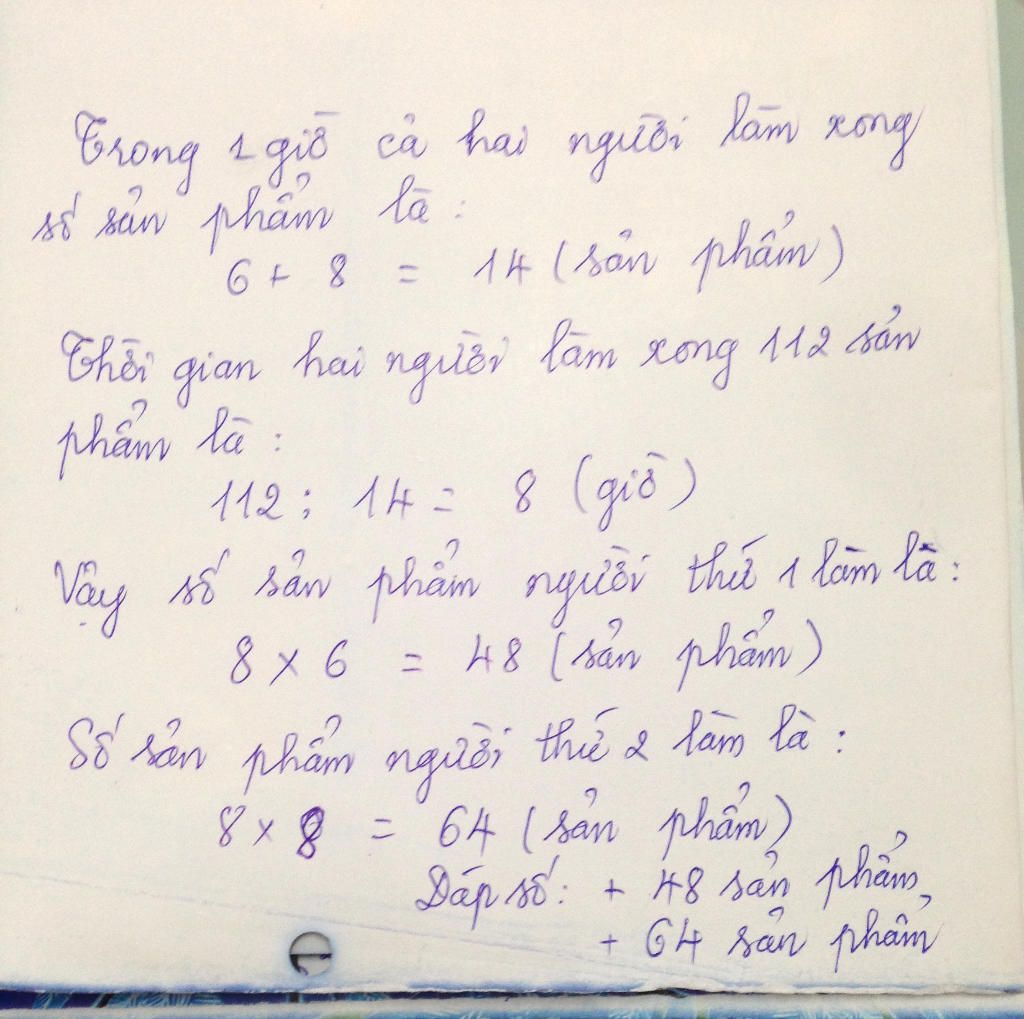 Trong 1 giờ cả hai người làm xong
số sản phẩm là :
6 + 8 = 14 (sản phẩm)
Thời gian hai người làm xong 112 sản
phẩm là :
112 : 14 = 8 (giờ)
Vậy số sản phẩm người thứ 1 làm là :
8 x 6 = 48 (sản phẩm)
Số sản phẩm người thứ 2 làm là :
8 x 8 = 64 (sản phẩm)
Đáp số : + 48 sản phẩm
+ 64 sản phẩm